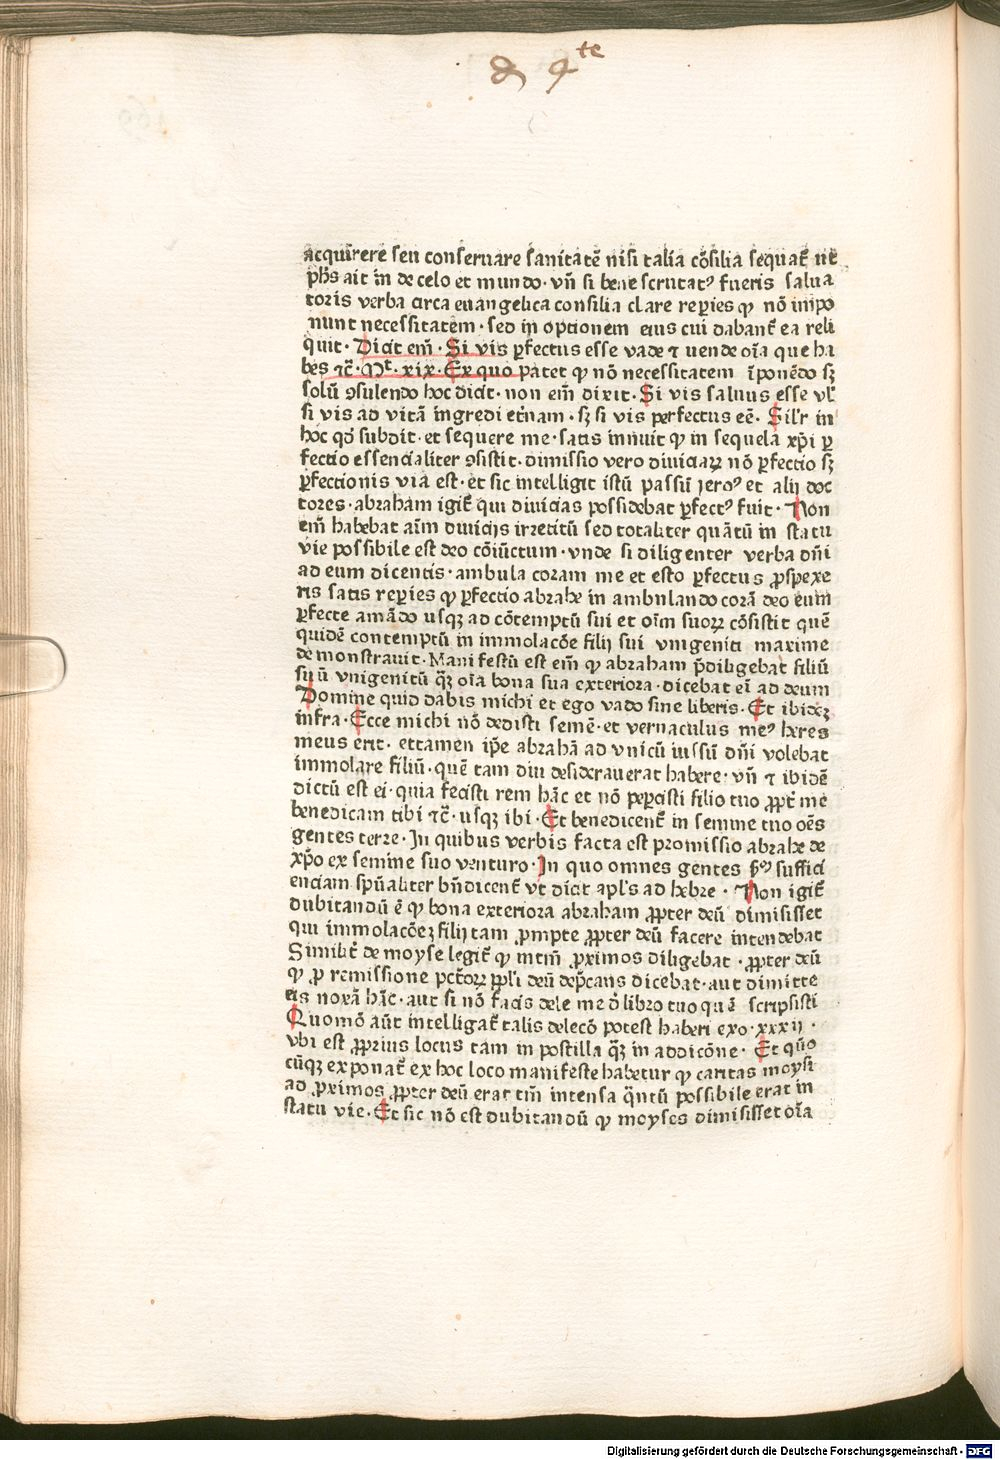 d 4te
acquirere seu conseruare sanitatē nisi talia cōsilia sequat᷑ vt
phs ait in de celo et mundo · vn̄ si bene scrutatꝰ fueris salua
toris verba circa euangelica consilia clare reperies ꝙ nō impo
nunt necessitatem · sed in optionem eius cui dabant᷑ ea reli
quit · Dicit em̄ · Si vis ꝑfectus esse vade ⁊ uende oīa que ha
bes ⁊c̄ · Mt · xix · Ex quo patet ꝙ nō necessitatem īponēdo sꝫ
solū ꝯsulendo hoc dicit · non em̄ dixit · Si vis saluus esse vl'
si vis ad vitā ingredi et̄nam · sꝫ si vis perfectus eē · Sil'r in
hoc qd̓ subdit · et sequere me · satis innuit ꝙ in sequela xp̄i ꝑ
fectio essencialiter ꝯsistit · dimissio vero diuiciaꝝ nō ꝑfectio sꝫ
ꝑfectionis via est · et sic intelligit istū passū jeroꝰ et alij doc
tores · abraham igit᷑ qui diuicias possidebat ꝑfectꝰ fuit · Non
em̄ habebat aīm diuicijs irretitū sed totaliter quātū in statu
vie possibile est deo cōiūctum · vnde si diligenter verba dn̄i
ad eum dicentis · ambula coram me et esto ꝑfectus ꝓspexe
ris satis reperies ꝙ ꝑfectio abrahe in ambulando corā deo eum
ꝑfecte amādo usqꝫ ad cōtemptū sui et oīm suoꝝ cōsistit quē
quidē contemptū in immolacōe filij sui vnigeniti maxime
demonstrauit · Manifestū est em̄ ꝙ abraham p̄diligebat filiū
suū vnigenitū q̄ꝫ oīa bona sua exteriora · dicebat em̄ ad deum
Domine quid dabis michi et ego vado sine liberis · Et ibidēꝫ
infra · Ecce michi nō dedisti semē · et vernaculus meꝰ heres
meus erit · ettamen ip̄e abrahā ad vnicū iussū dn̄i volebat
immolare filiū · quē tam diu desiderauerat habere · vn̄ ⁊ ibidē
dictū est ei · quia fecisti rem hāc et nō pepercisti filio tuo ꝓpt̄ me
benedicam tibi ⁊c̄ · usqꝫ ibi · Et benedicent᷑ in semine tuo oēs
gentes terre · In quibus verbis facta est promissio abrahe de
xp̄o ex semine suo venturo · In quo omnes gentes suffici
enciam spūaliter bn̄dicent᷑ vt dicit apl's ad hebre · Non igit᷑
dubitandū ē ꝙ bona exteriora abraham ꝓpter deū dimisisset
qui immolacōeꝫ filij tam ꝓmpte ꝓpter deū facere intendebat
Similit̄ de moyse legit᷑ ꝙ intm̄ ꝓximos diligebat · ꝓpter deū
ꝙ ꝓ remissione pctōꝝ ppl'i deū dep̄cans dicebat · aut dimitte
eis noxā hāc · aut si nō facis dele me d̓ libro tuo quē scripsisti
Quomō aūt intelligat᷑ talis delecō potest haberi exo · xxxij ·
vbi est ꝓprius locus tam in postilla q̄ꝫ in addicōne · Et quō
cūqꝫ exponat᷑ ex hoc loco manifeste habetur ꝙ caritas moysi
ad ꝓximos ꝓpter deū erat tm̄ intensa q̄ntū possibile erat in
statu vie · Et sic nō est dubitandū ꝙ moyses dimisisset oīa
Digitalisierung gefördert durch die Deutsche Forschungsgemeinschaft - DFG